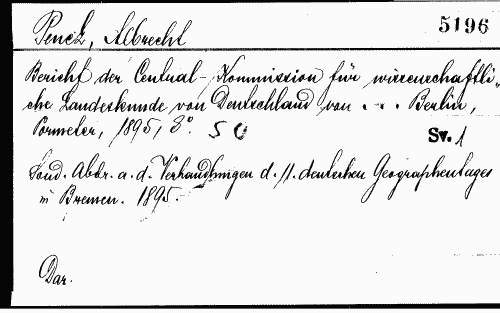 Penck, Albrecht 5196
Bericht der Central-Kommission für wissenschaftli-
che Landeskunde von Deutschland von . . . Berlin,
Pormeter, 1895, 8°. Sv. 1
Sond. Abdr. a. d. Verhandlungen d. 11. deutschen Geographentages
in Bremen. 1895.
Dar.